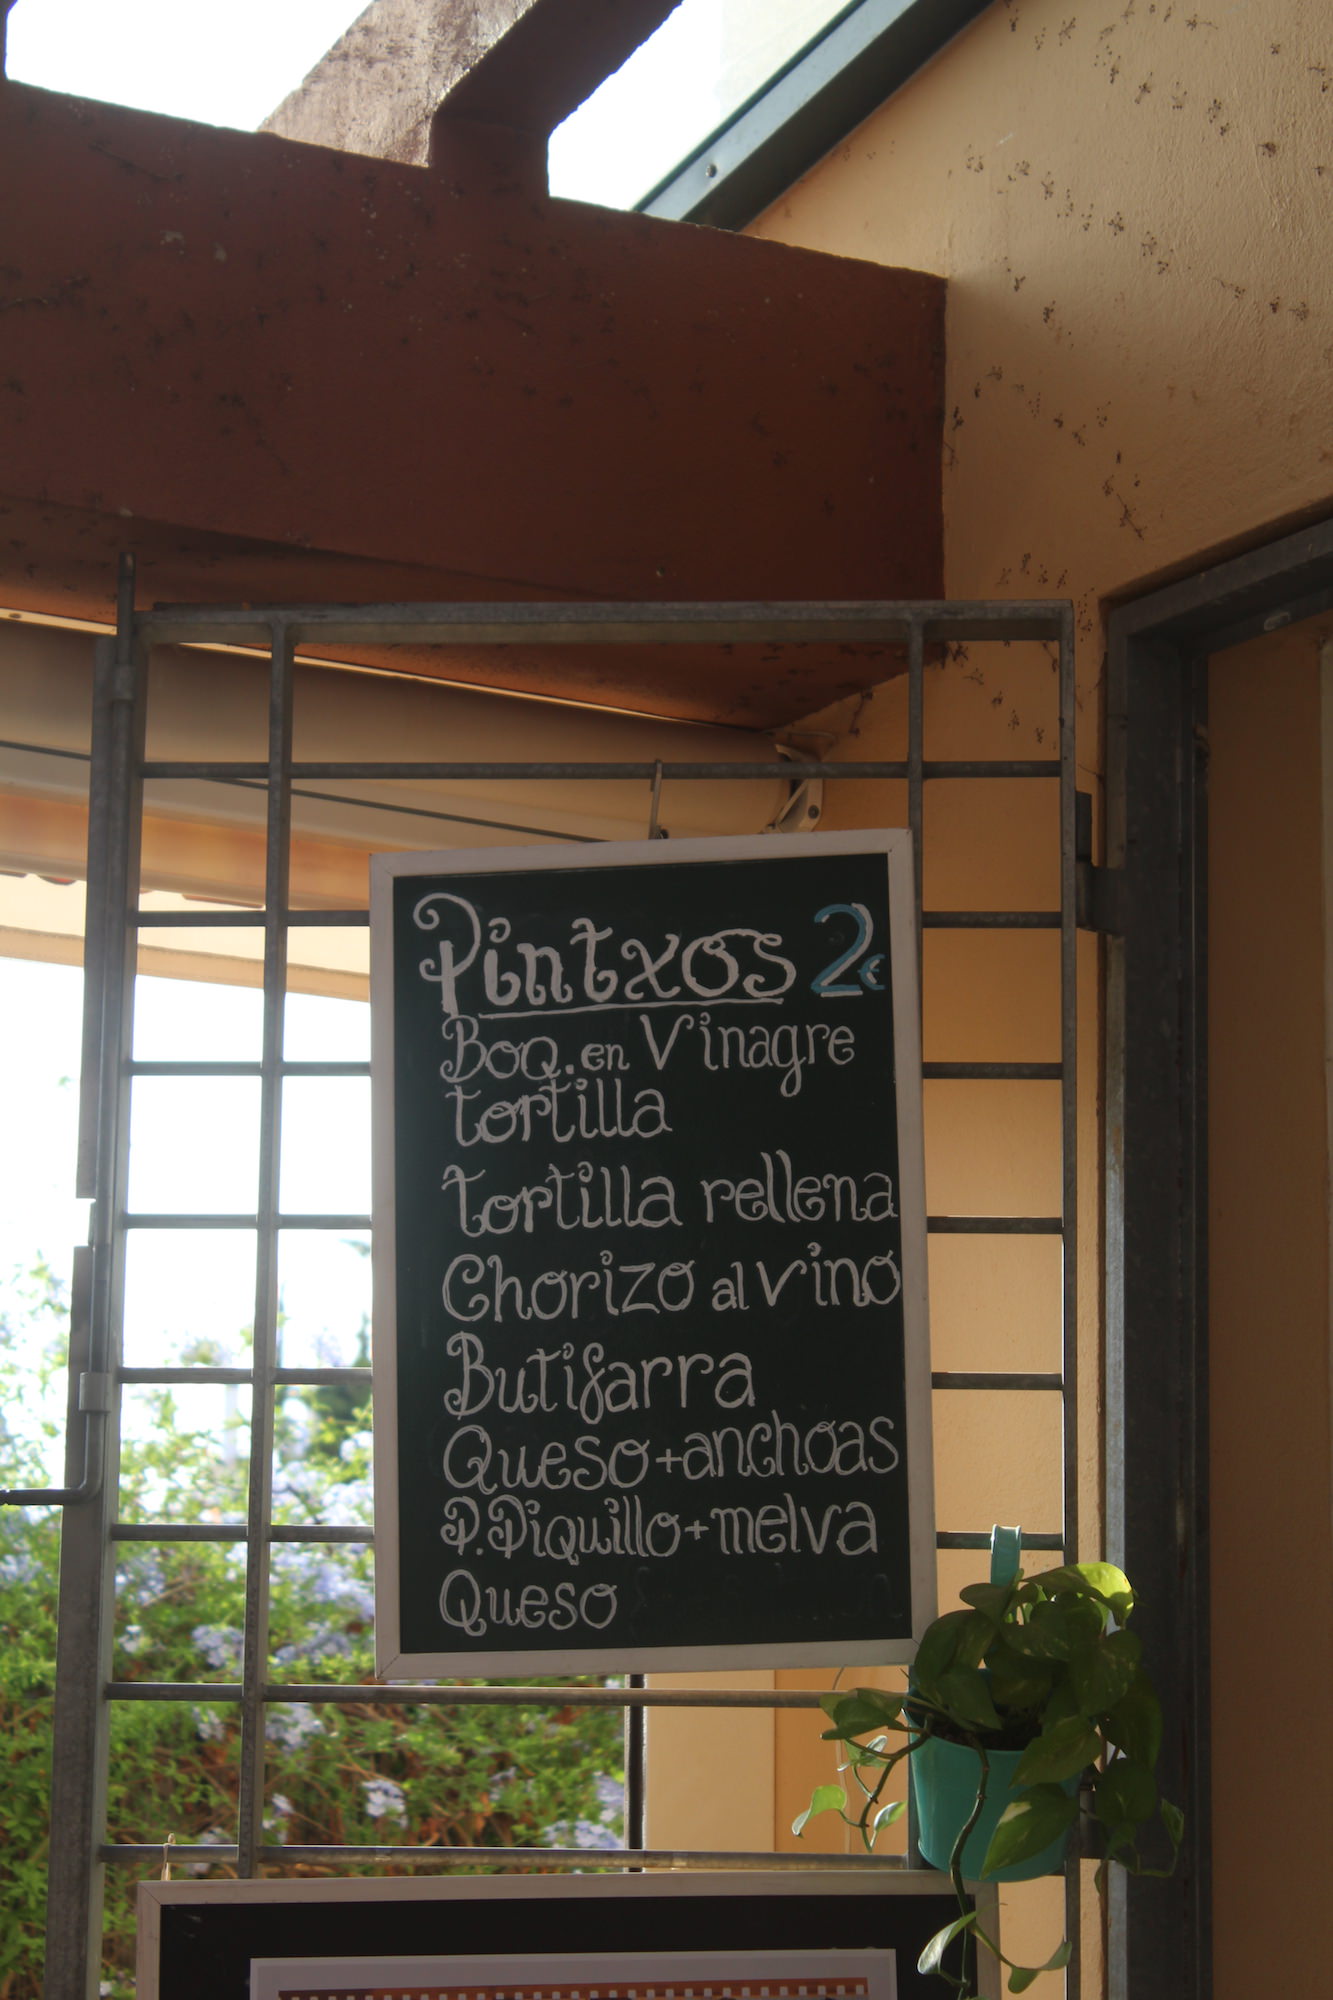 Pintxos 2€
Boq. en Vinagre
tortilla
tortilla rellena
Chorizo al vino
Butifarra
Queso + anchoas
P. Piquillo + melva
Queso